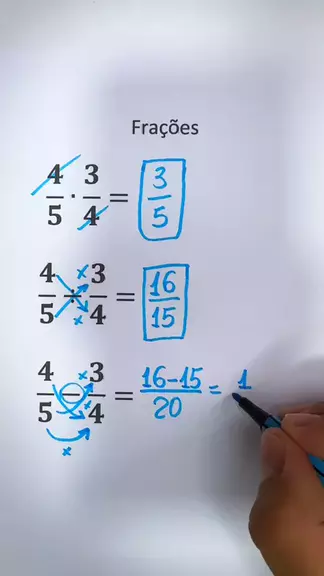 Frações
4/5 · 3/4 = 3/5
4/5 ÷ 3/4 = 16/15 × ×
4/5 − 3/4 = 16−15/20 = 1 × × ×